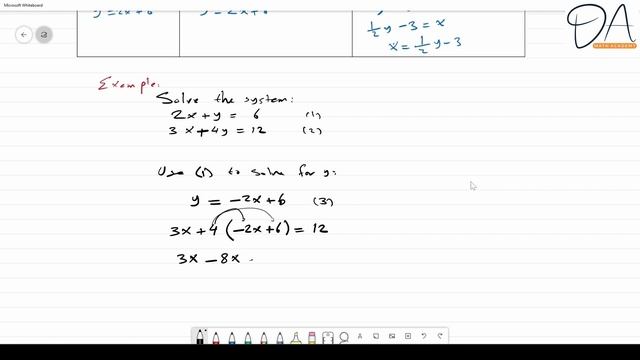 Microsoft Whiteboard
y = 2x + 6
y = -2x + 6
1/2 y - 3 = x
x = 1/2 y - 3
DA
MATH ACADEMY
Example:
Solve the system:
2x + y = 6 (1)
3x + 4y = 12 (2)
Use (1) to solve for y:
y = -2x + 6 (3)
3x + 4 (-2x + 6) = 12
3x - 8x -